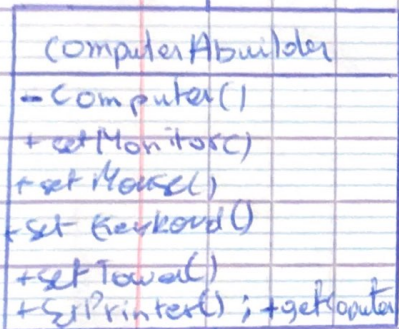 ComputerAbuilder
- Computer()
+ setMonitor()
+ setMouse()
+ set Keyboard()
+ setTower()
+ setPrinter() ; +getComputer